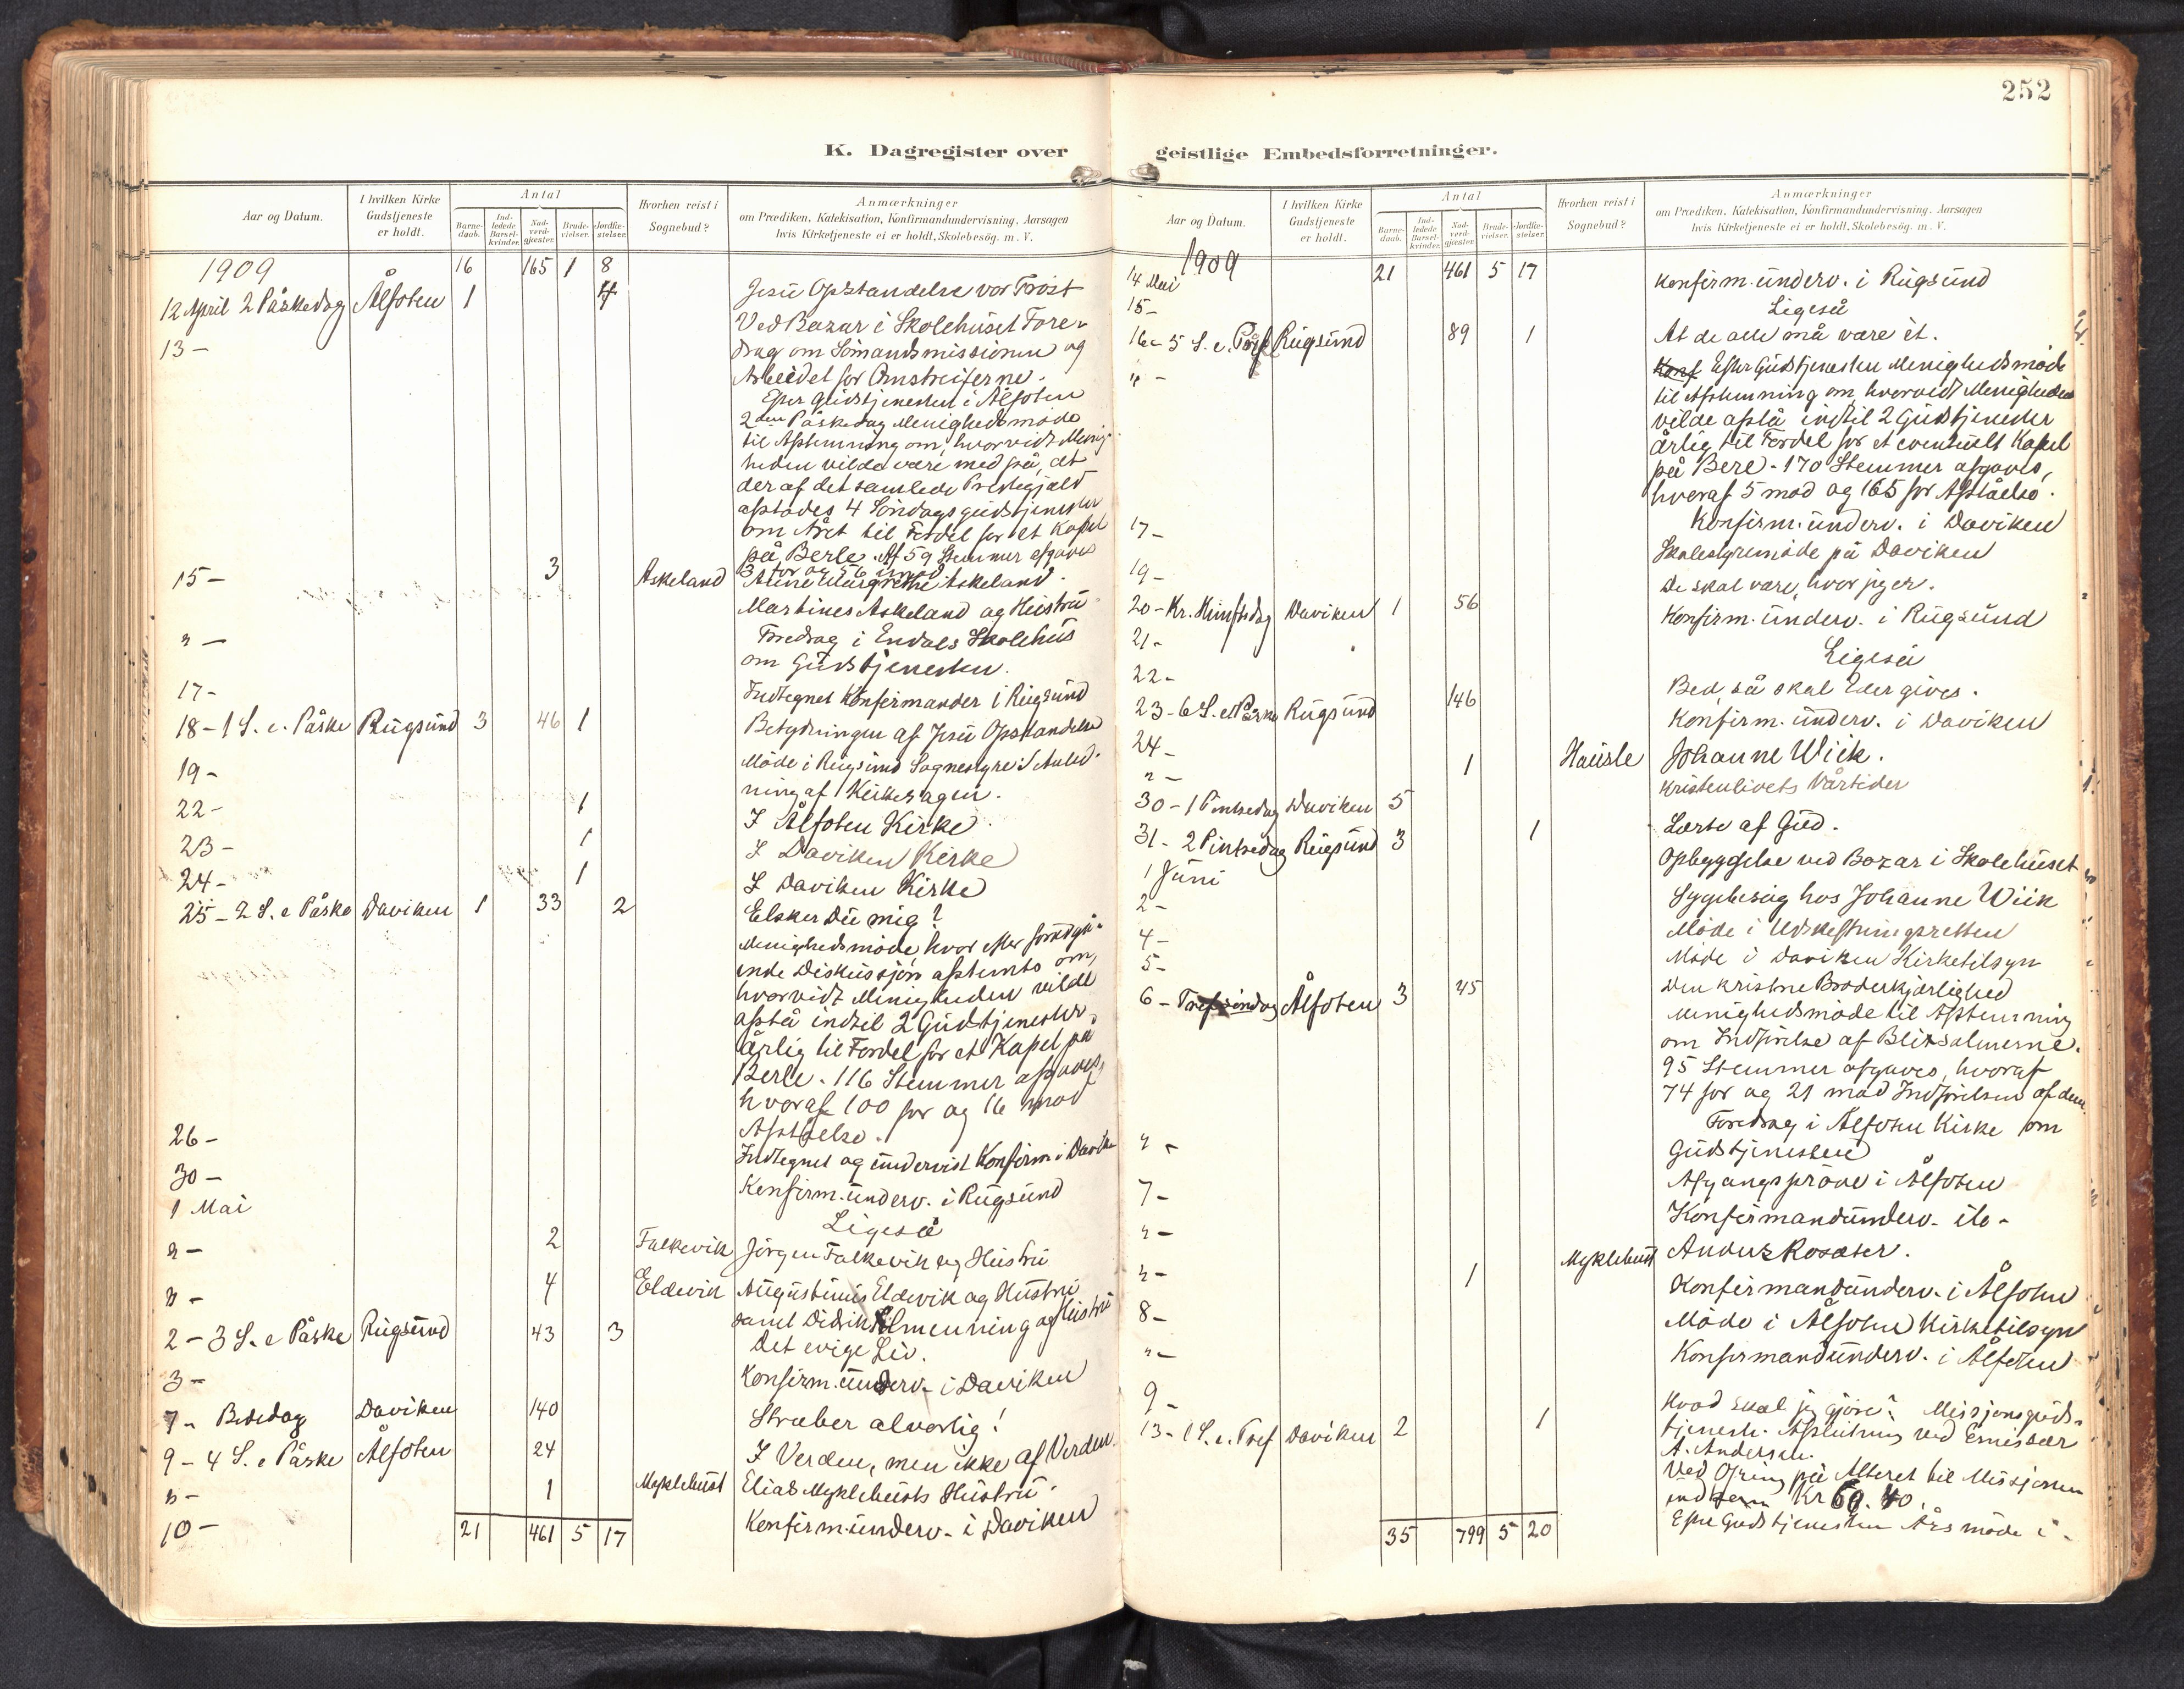 252
K. Dagregister over
Aar og Datum.
I hvilken Kirke Gudstjeneste er holdt.
Antal
Barne-daab.
Ind-ledede Barsel-kvinder.
Nad-verd-gjæster.
Brude-vielser.
Jordfæ-stelser.
Hvorhen reist i Sognebud?
Anmærkninger
om Prædiken, Katekisation, Konfirmandundervisning. Aarsagen
hvis Kirketjeneste ei er holdt, Skolebesög. m. V.
1909 16 165 1 8
12 April 2 Påskedag Ålfoten 1 4 Jesu Opstandelse vor Trøst
13 - Ved Bazar i Skolehuset Fore-
drag om Sømandsmissionen og
Arbeidet for Omstreiferne.
Efter Gudstjenesten i Ålfoten
2den Påskedag Menighedsmøde
til Afstemning om, hvorvidt Menig-
heden vilde være med på, at
der af det samlede Prestegjeld
afstodes 4 Søndagsgudstjenester
om Året til Fordel for et Kapel
på Berle. Af 59 Stemmer afgaves
3 for og 56 imod
15 - 3 Askeland Anne Margrethe Askeland.
Martines Askeland og Hustru
" - Foredrag i Endals Skolehus
om Gudstjenesten.
17 - Indtegnet Konfirmander i Rugsund
18 - 1 S. e. Påske Rugsund 3 46 1 Betydningen af Jesu Opstandelse
19 - Møde i Rugsund Sognestyre i Anled-
ning af Kirkesagen.
22 - 1 I Ålfoten Kirke
23 - 1 I Daviken Kirke
24 - 1 I Daviken Kirke
25 - 2 S. e Påske Daviken 1 33 2 Elsker Du mig?
Menighedsmøde, hvor efter forudgå-
ende Diskussjon afstemtes om,
hvorvidt Menigheden vilde
afstå indtil 2 Gudstjenester
årlig til Fordel for et Kapel på
Berle. 116 Stemmer afgaves,
hvoraf 100 for og 16 mod
Afståelse.
26 - Indtegnet og undervist Konfirm. i Davike
30 - Konfirm. underv. i Rugsund
1 Mai Ligeså
" - 2 Falkevik Jørgen Falkevik og Hustru
" - 4 Eldevik Augustinus Eldevik og Hustru
samt Didrik Elmenning og Hustru
2 - 3 S. e Påske Rugsund 43 3 Det evige Liv.
3 - Konfirm. underv. i Daviken
7 - Bededag Daviken 140 Stræber alvorlig!
9 - 4 S. e Påske Ålfoten 24 I Verden, men ikke af Verden.
" - 1 Myklebust Elias Myklebusts Hustru.
10 - Konfirm. underv. i Daviken
21 461 5 17
geistlige Embedsforretninger.
Aar og Datum.
I hvilken Kirke Gudstjeneste er holdt.
Antal
Barne-daab.
Ind-ledede Barsel-kvinder.
Nad-verd-gjæster.
Brude-vielser.
Jordfæ-stelser.
Hvorhen reist i Sognebud?
Anmærkninger
om Prædiken, Katekisation, Konfirmandundervisning. Aarsagen
hvis Kirketjeneste ei er holdt, Skolebesög. m. V.
1909 21 461 5 17
14 Mai Konfirm. underv. i Rugsund
15 - Ligeså
16 - 5 S. e. Påske Rugsund 89 1 At de alle må være ét.
" - Konf Efter Gudstjenesten Menighedsmøde
til Afstemning om, hvorvidt Menigheden
vilde afstå indtil 2 Gudstjenester
årlig til Fordel for et eventuelt Kapel
på Berl. 170 Stemmer afgaves,
hvoraf 5 mod og 165 for Afståelse.
17 - Konfirm. underv. i Daviken
19 - Skolestyremøde på Daviken
20 - Kr. Himfdag Daviken 1 56 De skal være, hvor jeg er.
21 - Konfirm. underv. i Rugsund
22 - Ligeså
23 - 6 S. e Påske Rugsund 146 Bed, så skal Eder gives.
24 - Konfirm. underv. i Daviken
" - 1 Hausle Johanne Wiik.
30 - 1 Pintsedag Daviken 5 Kristenlivets Vårtider
31 - 2 Pintsedag Rugsund 3 1 Lærte af Gud.
1 Juni Opbyggelse ved Bazar i Skolehuset
2 - Sygebesøg hos Johanne Wiik
4 - Møde i Udskiftningsretten
5 - Møde i Daviken Kirketilsyn
6 - Trefsøndag Ålfoten 3 45 Den kristne Broderkjærlighed
Menighedsmøde til Afstemning
om Indførelse af Blixsalmerne.
95 Stemmer afgaves, hvoraf
74 for og 21 mod Indførelsen af dem.
" - Foredrag i Ålfoten Kirke om
Gudstjenesten
7 - Afgangsprøve i Ålfoten
" - Konfirmandunderv. ito -
" - 1 Myklebust Anders Rosæter.
8 - Konfirmandunderv. i Ålfoten
" - Møde i Ålfoten Kirketilsyn
9 - Konfirmandunderv. i Ålfoten
13 - 1 S. e. Tref Daviken 2 1 Hvad skal jeg gjøre? Missjonsguds-
tjeneste. Afslutning ved Emissær
A. Andersen.
Ved Ofring på Alteret til Missjonen
indkom Kr 60.40.
Efter Gudstjenesten Årsmøde i -
35 799 5 20